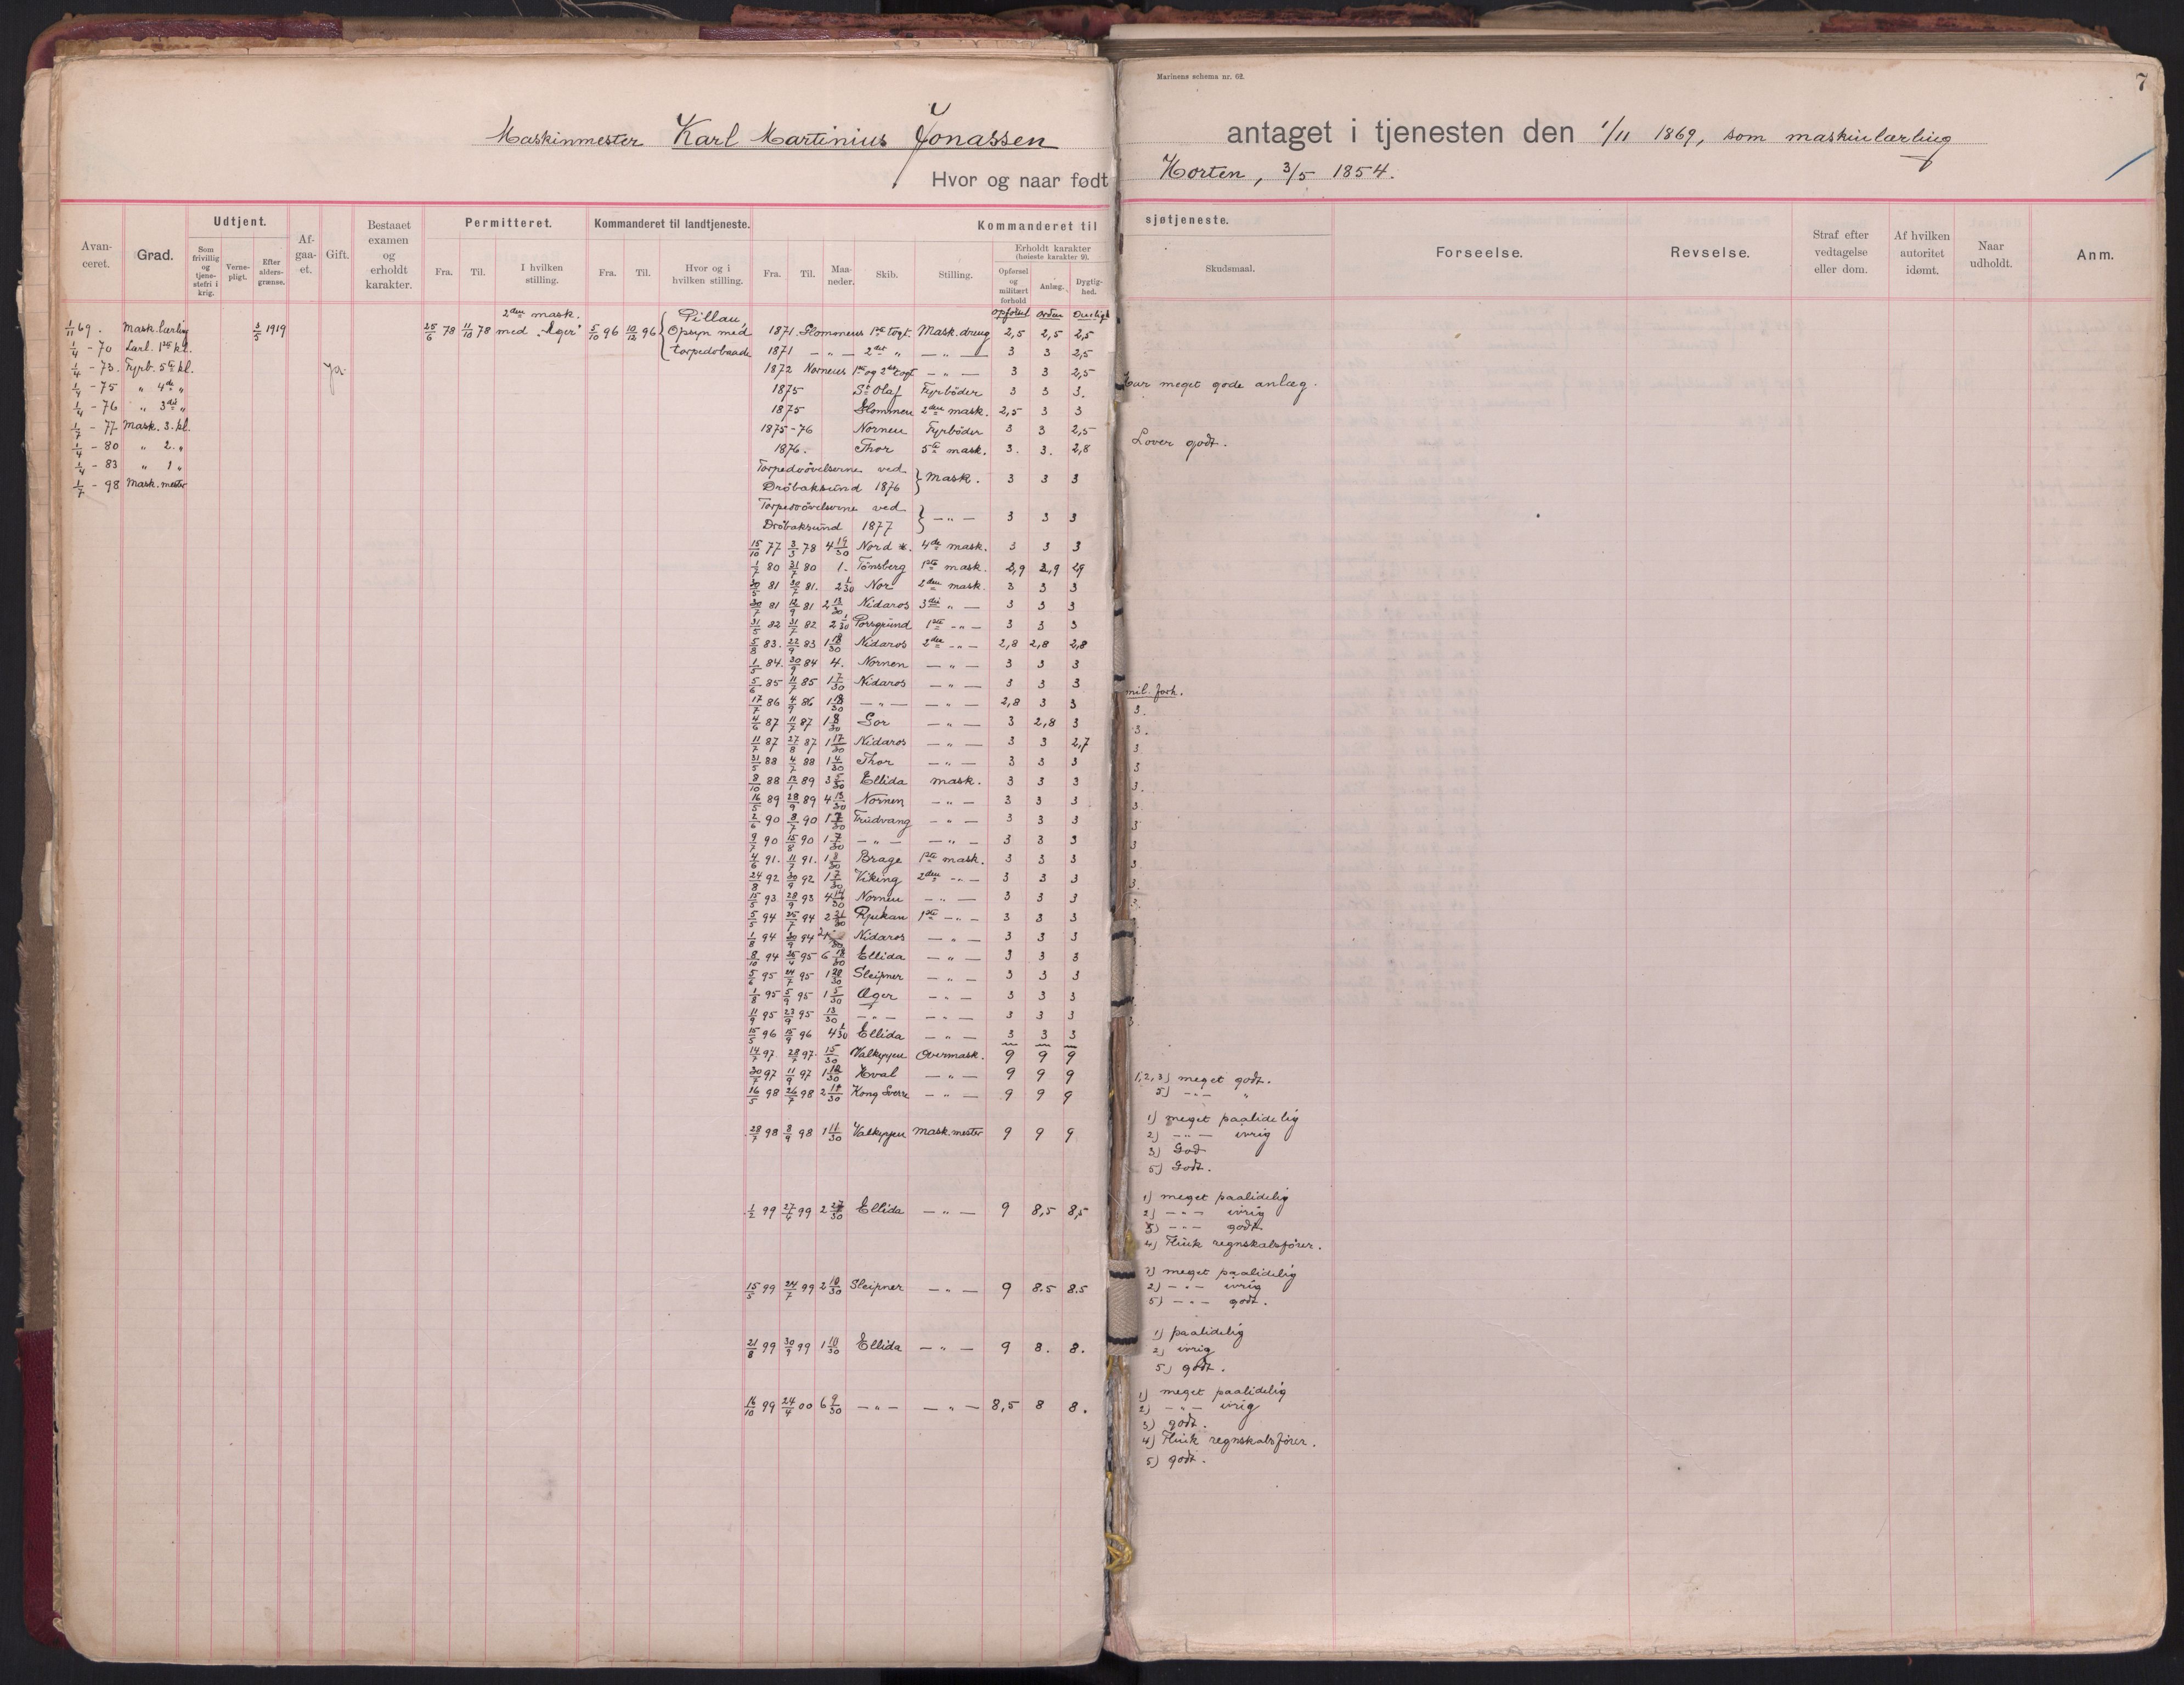 Marinens schema nr. 62.
7
Maskinmester Karl Martinius Jonassen
antaget i tjenesten den 1/11 1869, som maskinlærling
Hvor og naar født Horten, 3/5 1854.
Avanceret. Grad. Udtjent. Afgaaet. Gift. Bestaaet examen og erholdt karakter. Permitteret. Kommanderet til landtjeneste. Kommanderet til sjøtjeneste. Forseelse. Revselse. Straf efter vedtagelse eller dom. Af hvilken autoritet idømt. Naar udholdt. Anm.
Som frivillig og tjenestefri i krig. Vernepligt. Efter aldersgrænse. Fra. Til. I hvilken stilling. Fra. Til. Hvor og i hvilken stilling. Fra. Til. Maaneder. Skib. Stilling. Erholdt karakter (høieste karakter 9). Opførsel og militært forhold Anlæg. Dygtighed. Skudsmaal.
1/11 69. Mask. lærling
1/4 - 70 Lærl. 1ste kl.
1/4 - 73. Fyrb. 5te kl.
1/4 - 75 " 4de "
1/4 - 76 " 3die "
1/7 - 77 Mask. 3. kl.
1/4 - 80 " 2. "
1/4 - 83 " 1 "
1/7 - 98 Mask. mester
3/5 1919
Ja.
2den mask.
25/6 78 11/10 78 med "Æger"
5/10 96 10/12 96 { Pillau, Opsyn med torpedobaade
opførsel orden duelighed
1871 Glommens 1ste togt. Mask. dreng 2,5 2,5 2,5
1871 — " — 2det " — " — 3 3 2,5
1872 Nornens 1ste og 2det togt — " — 3 3 2,5
1875 St Olaf Fyrböder 3 3 3. Har meget gode anlæg.
1875 Glommen 2den mask. 2,5 3 3
1875-76 Nornen Fyrböder 3 3 2,5
1876. Thor 5te mask. 3. 3. 2,8 Lover godt.
Torpedoövelserne ved
Dröbaksund 1876 } Mask. 3 3 3
Torpedoövelserne ved
Dröbaksund 1877 } — " — 3 3 3
15/10 77 3/3 78 4 19/30 Nord *. 4de mask. 3 3 3
1/7 80 31/7 80 1. Tönsberg 1ste mask. 2,9 2,9 2,9
30/5 81 30/7 81. 2 1/30 Nor 2den mask. 3 3 3
30/7 81 12/9 81 2 13/30 Nidaros 3die " — 3 3 3
31/5 82 31/7 82 2 1/30 Porsgrund 1ste — " — 3 3 3
5/8 83. 22/9 83 1 18/30 Nidaros 2den — " — 2,8 2,8 2,8
1/5 84. 30/9 84 4. Nornen — " — 3 3 3
5/6 85 11/7 85 1 7/30 Nidaros — " — 3 3 3
mil. forh.
17/7 86 4/9 86 1 18/30 — " — — " — 2,8 3 3 3.
4/6 87 11/7 87 1 8/30 Gor — " — 3 2,8 3 3.
11/7 87 27/8 87 1 17/30 Nidaros — " — 3 3 2,7 3
31/5 88 4/7 88 1 4/30 Thor — " — 3 3 3 3
8/10 88 12/1 89 3 5/30 Ellida mask. 3 3 3 3.
16/5 89 28/9 89 4 13/30 Nornen — " — 3 3 3 3.
2/6 90 8/7 90 1 7/30 Trudvang — " — 3 3 3 3
9/7 90 15/8 90 1 7/30 — " — — " — 3 3 3 3
4/6 91. 11/7 91. 1 8/30 Brage 1ste mask. 3 3 3 3
24/8 92 30/9 92 1 7/30 Viking 2den — " — 3 3 3 3.
15/5 93 28/9 93 4 14/30 Nornen — " — 3 3 3 3.
5/5 94 25/7 94 2 21/30 Rjukan 1ste — " — 3 3 3
1/8 94 30/9 94 2 Nidaros — " — 3 3 3
8/10 94 25/4 95 6 18/30 Ellida — " — 3 3 3
5/6 95 24/7 95 1 20/30 Sleipner — " — 3 3 3
1/8 95 5/9 95 1 5/30 Æger — " — 3 3 3
11/9 95 23/9 95 13/30 — " — — " — 3 3 3 3.
15/5 96 15/9 96 4 1/30 Ellida — " — 3 3 3
14/7 97 28/7 97. 15/30 Valkyrjen Overmask. 9 9 9
30/7 97 11/9 97 1 12/30 Hval — " — 9 9 9 1, 2, 3) meget godt.
5) — " — "
16/5 98 26/7 98 2 11/30 Kong Sverre — " — 9 9 9
28/7 98 8/9 98 1 11/30 Valkyrjen mask. mester 9 9 9
1) meget paalidelig
2) — " — ivrig
3) God
5) Godt.
1/2 99 27/6 99 2 27/30 Ellida — " — 9 8,5 8,5
1) meget paalidelig
2) — " — ivrig
3) — " — godt
4) Flink regnskabsfører.
15/5 99 24/7 99 2 10/30 Sleipner — " — 9 8.5 8.5
1) meget paalidelig
2) — " — ivrig
5) — " — godt.
21/8 99 30/9 99 1 10/30 Ellida — " — 9 8. 8.
1) paalidelig
2) ivrig
5) godt.
16/10 99 24/4 00 6 9/30 — " — — " — 8,5 8 8.
1) meget paalidelig
2) — " — ivrig
3) godt.
4) Flink regnskabsfører.
5) godt.